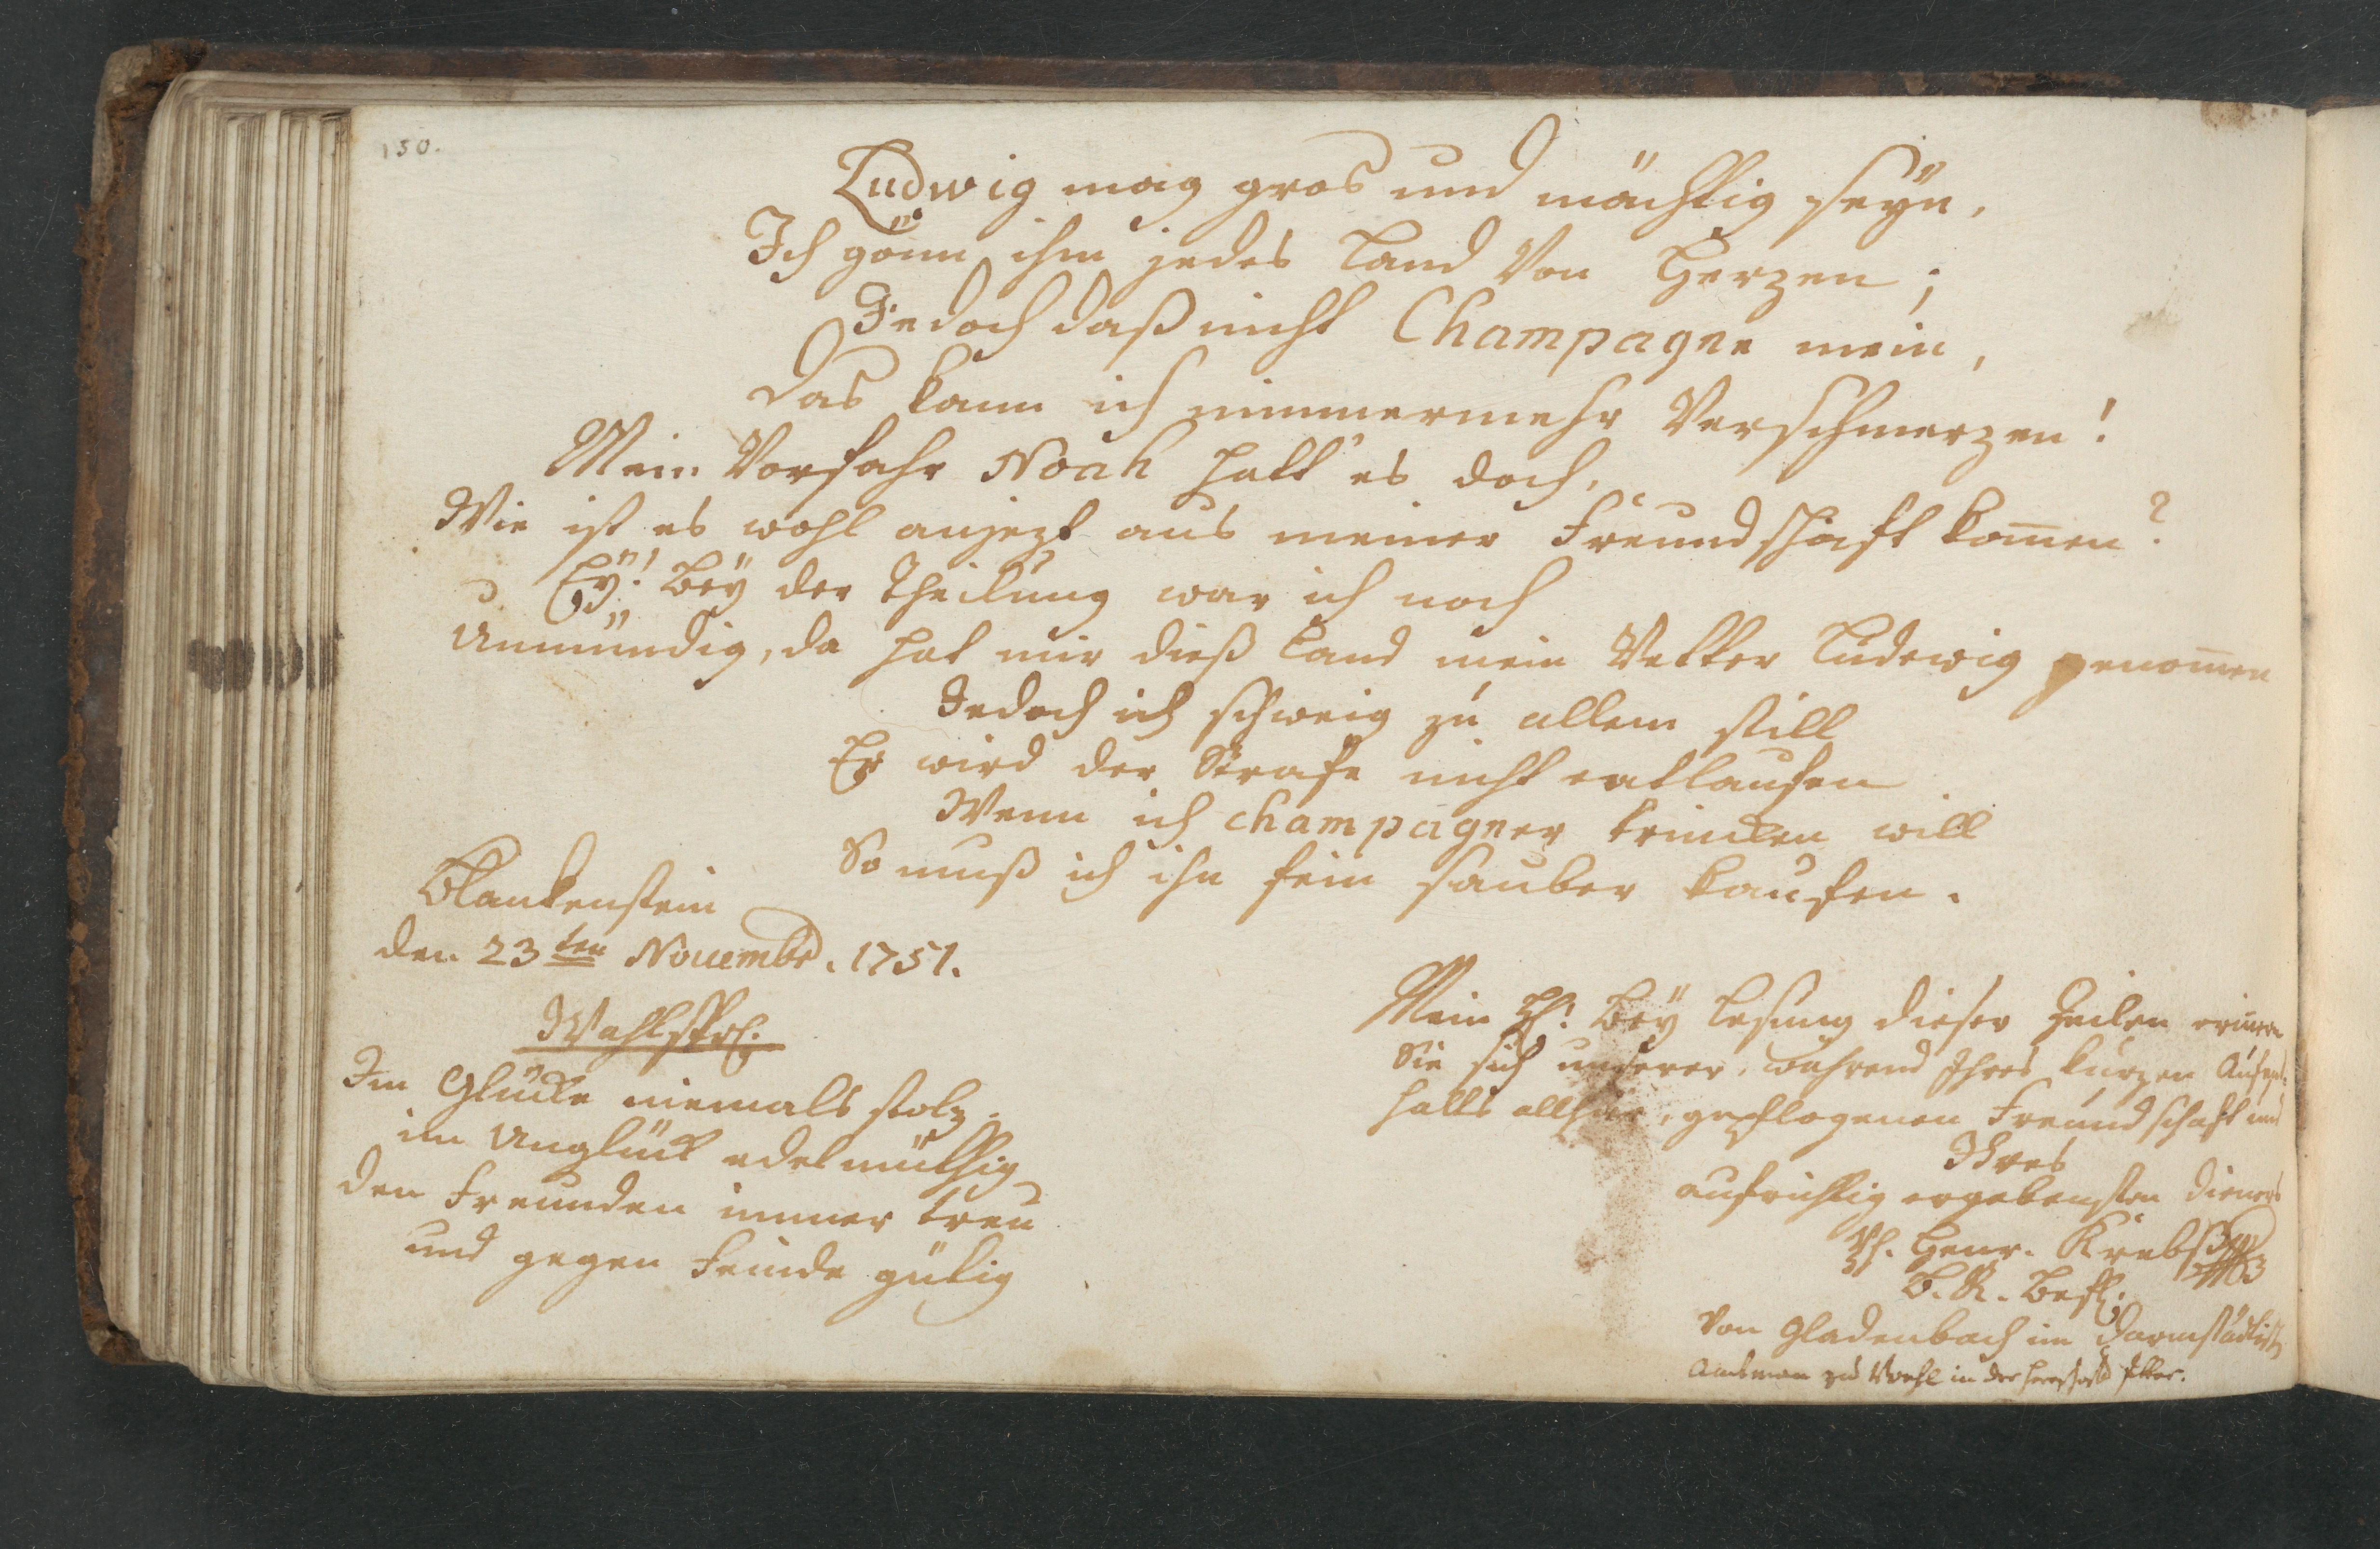 150.
Ludwig mag gros und mächtig seÿn,
Ich gönn ihm jedes Land Von Herzen;
Jedoch daß nicht Champagne mein,
Das kann ich nimmermehr Verschmerzen!
Mein Vorfahr Noah hatt' es doch,
Wie ist es wohl anjezt aus meiner Freundschafft kom̅en?
Eÿ! Beÿ der Theilung war ich noch
Unmündig, da hat mir dieß Land mein Vetter Ludewig genom̅en
Jedoch ich schweig zu allem still
Er wird der Strafe nicht entlaufen
Wenn ich champagner trincken will
So muß ich ihn fein sauber kaufen.
Blankenstein
den 23ten Novembr. 1751.
Wahlspr.
Im Glücke niemals stolz,
im Unglück edelmüthig
den Freunden immer treu
und gegen Feinde gütig
Mein H! Beÿ Lesung dieser Zeilen erinnern
Sie sich unserer, während Ihres kurzen Aufent-
halts allhier, gepflogenen Freundschaft und
Ihres
aufrichtig ergebensten Dieners
Ph. Henr. Krebs
B. R. Befl.
Von Gladenbach im Darmstädtisch
Amtman zu Voehl in der Herrschafft Itter.